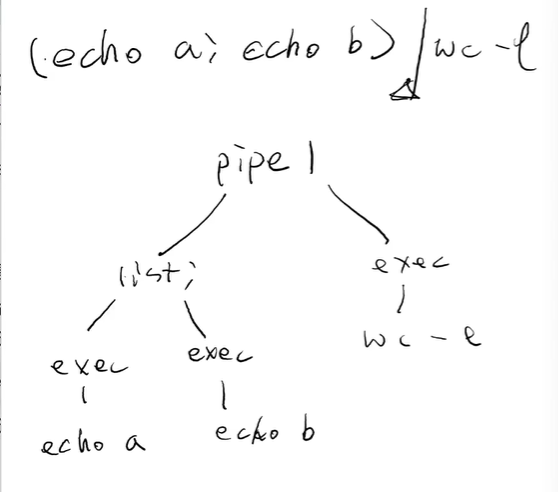 (echo a; echo b) | wc -l
pipe |
list; exec
exec exec wc - l
echo a echo b